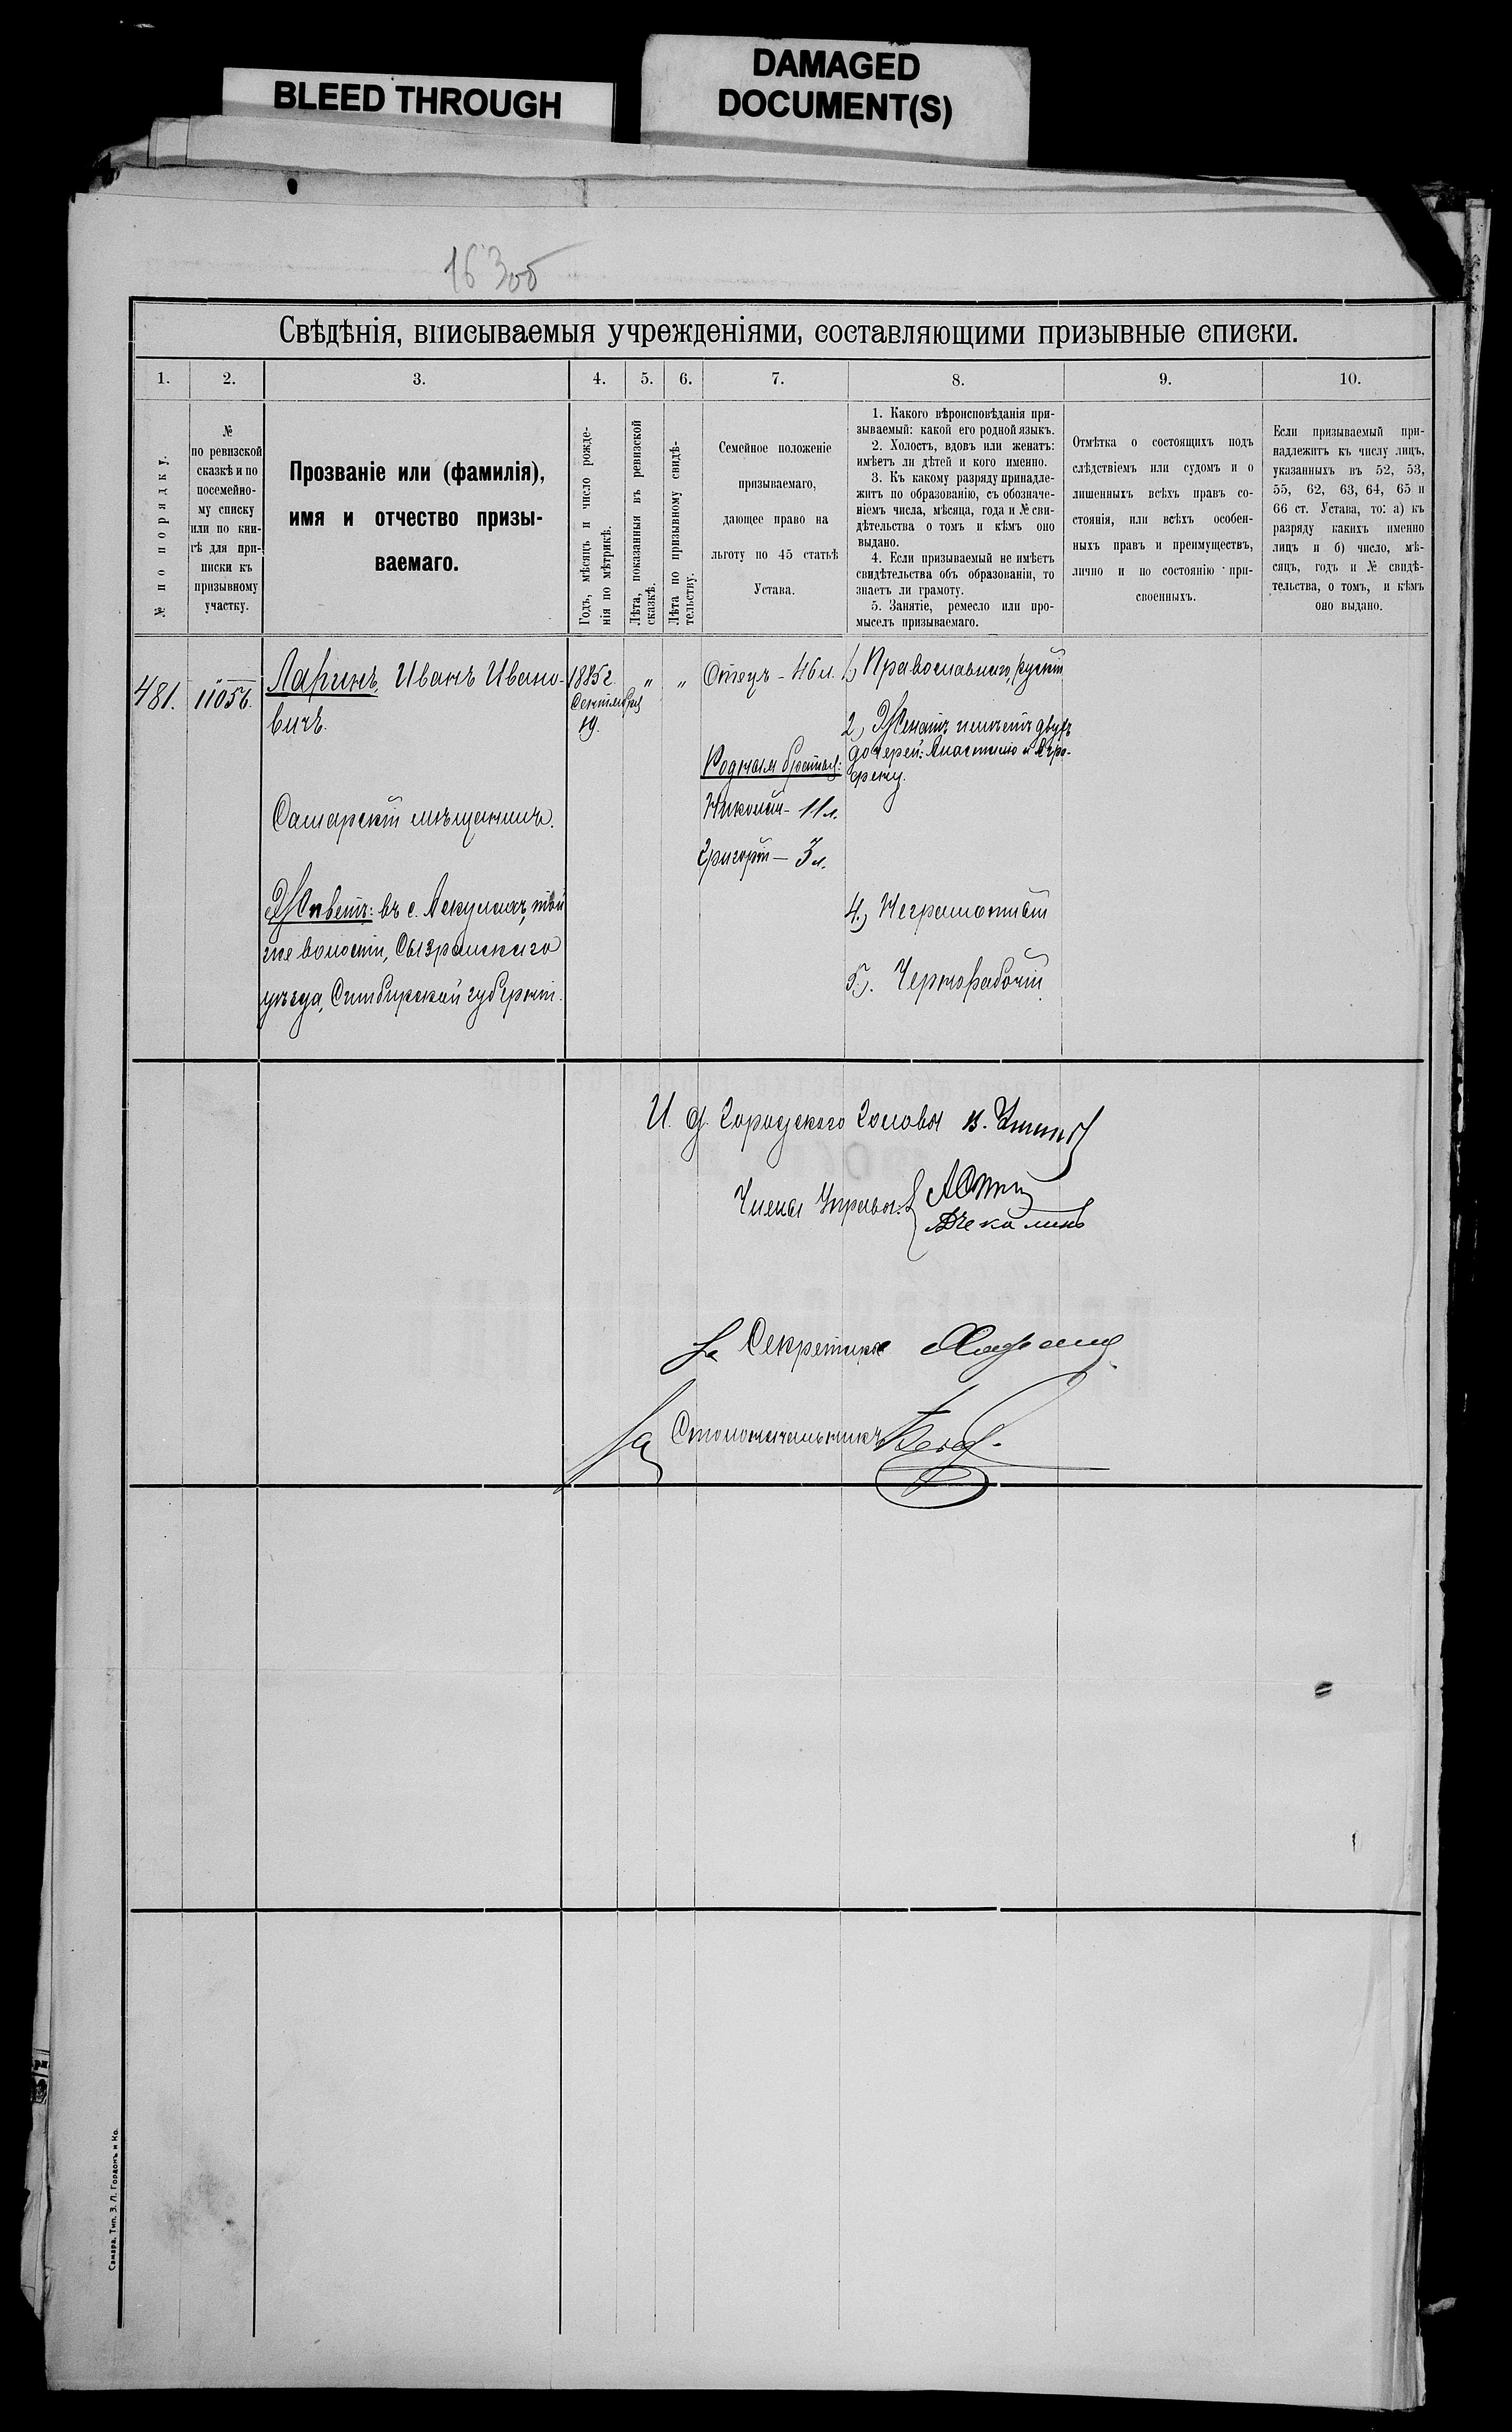 BLEED THROUGH
DAMAGED
DOCUMENT(S)
163 об
Свѣдѣнія, вписываемыя учрежденіями, составляющими призывные списки.
1.
2.
3.
4.
5.
6.
7.
8.
9.
10.
№ по порядку.
№
по ревизской
сказкѣ и по
посемейно-
му списку
или по кни-
гѣ для при-
писки къ
призывному
участку.
Прозваніе или (фамилія),
имя и отчество призы-
ваемаго.
Годъ, мѣсяцъ и число рожде-
нія по мѣтрикѣ.
Лѣта, показанныя въ ревизской
сказкѣ.
Лѣта по призывному свидѣ-
тельству.
Семейное положеніе
призываемаго,
дающее право на
льготу по 45 статьѣ
Устава.
1. Какого вѣроисповѣданія при-
зываемый: какой его родной языкъ.
2. Холостъ, вдовъ или женатъ:
имѣетъ ли дѣтей и кого именно.
3. Къ какому разряду принадле-
житъ по образованію, съ обозначе-
ніемъ числа, мѣсяца, года и № сви-
дѣтельства о томъ и кѣмъ оно
выдано.
4. Если призываемый не имѣетъ
свидѣтельства объ образованіи, то
знаетъ ли грамоту.
5. Занятіе, ремесло или про-
мыселъ призываемаго.
Отмѣтка о состоящихъ подъ
слѣдствіемъ или судомъ и о
лишенныхъ всѣхъ правъ со-
стоянія, или всѣхъ особен-
ныхъ правъ и преимуществъ,
лично и по состоянію при-
своенныхъ.
Если призываемый при-
надлежитъ къ числу лицъ,
указанныхъ въ 52, 53,
55, 62, 63, 64, 65 и
66 ст. Устава, то: а) къ
разряду какихъ именно
лицъ и б) число, мѣ-
сяцъ, годъ и № свидѣ-
тельства, о томъ, и кѣмъ
оно выдано.
481.
11056.
Ларинъ, Иванъ Ивано-
вичъ.
Самарскій мѣщанинъ.
Живетъ: въ с. Аскулахъ, той
же волости, Сызранскаго
уѣзда, Симбирской губерніи.
1885 г.
Сентября
19.
"
"
Отецъ - 46 л.
Родные братья:
Николай - 11 л.
Григорій - 3 л.
1) Православнаго, русскій
2) Женатъ имѣетъ двухъ
дочерей: Анастасію и
4.) Неграмотный
5.) Чернорабочій
И. д. Городского Головы
Члены Управы:
А Чекалинъ
За Секретаря
За Столоначальникъ
Самара, Тип. З. Л. Гордонъ и Ко.